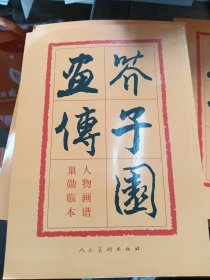 芥子園
畫傳
人物画谱
巢勋临本
人民美术出版社